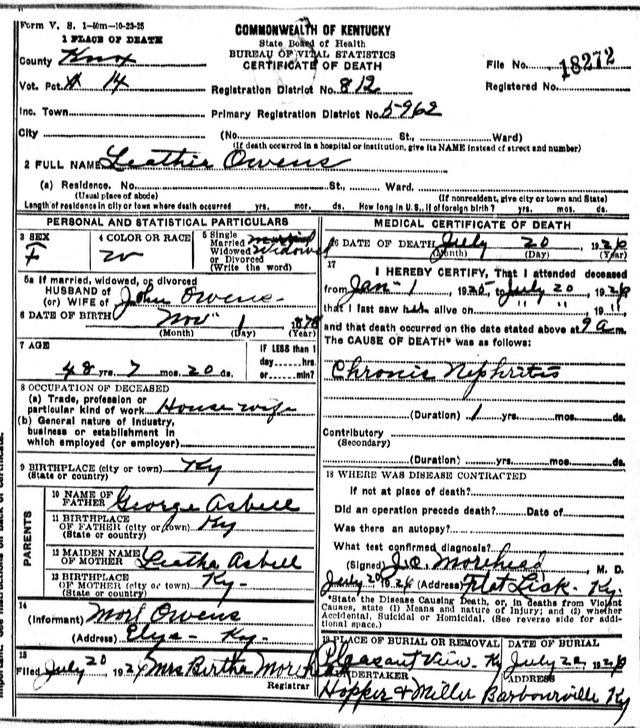 Form V. S. 1-50m-10-23-25
1 PLACE OF DEATH
COMMONWEALTH OF KENTUCKY
State Board of Health
BUREAU OF VITAL STATISTICS
CERTIFICATE OF DEATH
County Knox
File No. 18272
Vot. Pct. # 14
Registration District No. 812
Registered No.
Inc. Town
Primary Registration District No. 5962
City (No. St., Ward)
(If death occurred in a hospital or institution, give its NAME instead of street and number)
2 FULL NAME Leathie Owens
(a) Residence. No. St., Ward.
(Usual place of abode) (If nonresident, give city or town and State)
Length of residence in city or town where death occurred yrs. mos. ds. How long in U.S., if of foreign birth? yrs. mos. ds.
PERSONAL AND STATISTICAL PARTICULARS
3 SEX
F
4 COLOR OR RACE
W
5 Single
Married
Widowed Widowed
or Divorced
(Write the word)
5a If married, widowed, or divorced
HUSBAND of
(or) WIFE of John Owens
6 DATE OF BIRTH Nov 1 1878
(Month) (Day) (Year)
7 AGE
48 yrs. 7 mos. 20 ds.
IF LESS than 1
day hrs.
or min?
8 OCCUPATION OF DECEASED
(a) Trade, profession or
particular kind of work House wife
(b) General nature of Industry,
business or establishment in
which employed (or employer)
9 BIRTHPLACE (city or town) Ky
(State or country)
PARENTS
10 NAME OF
FATHER George Asbell
11 BIRTHPLACE
OF FATHER (city or town) Ky
(State or country)
12 MAIDEN NAME
OF MOTHER Leatha Asbell
13 BIRTHPLACE
OF MOTHER (city or town) Ky-
(State or country)
14
(Informant) Morl Owens
(Address) Elys- Ky-
15
Filed July 20, 192 Mrs Bertha
Registrar
MEDICAL CERTIFICATE OF DEATH
16 DATE OF DEATH July 20 1926
(Month) (Day) (Year)
17
I HEREBY CERTIFY, That I attended deceased
from Jan- 1, 1926 to July 20, 1926
that I last saw h alive on " " " , 19 "
and that death occurred on the date stated above at 9 a m.
The CAUSE OF DEATH* was as follows:
Chronic Nephritis
(Duration) 1 yrs. mos. ds.
Contributory
(Secondary)
(Duration) yrs. mos. ds.
18 WHERE WAS DISEASE CONTRACTED
If not at place of death?
Did an operation precede death? Date of
Was there an autopsy?
What test confirmed diagnosis?
(Signed) J.O. Morehead, M. D.
July 20, 1926 (Address) Flat Lick- Ky.
*State the Disease Causing Death, or, in deaths from Violent
Causes, state (1) Means and nature of Injury; and (2) whether
Accidental, Suicidal or Homicidal. (See reverse side for addi-
tional space.)
19 PLACE OF BURIAL OR REMOVAL DATE OF BURIAL
Pleasant View- Ky July 22, 1926
UNDERTAKER ADDRESS
Hopper & Miller Barbourville Ky